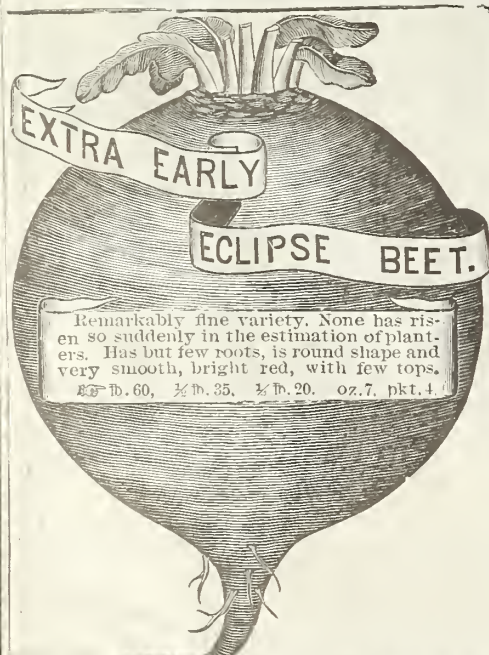 EXTRA EARLY
ECLIPSE BEET.
Remarkably fine variety. None has ris-
en so suddenly in the estimation of plant-
ers. Has but few roots, is round shape and
very smooth, bright red, with few tops.
☞ ℔. 60, ½ ℔. 35, ¼ ℔. 20. oz. 7. pkt. 4.